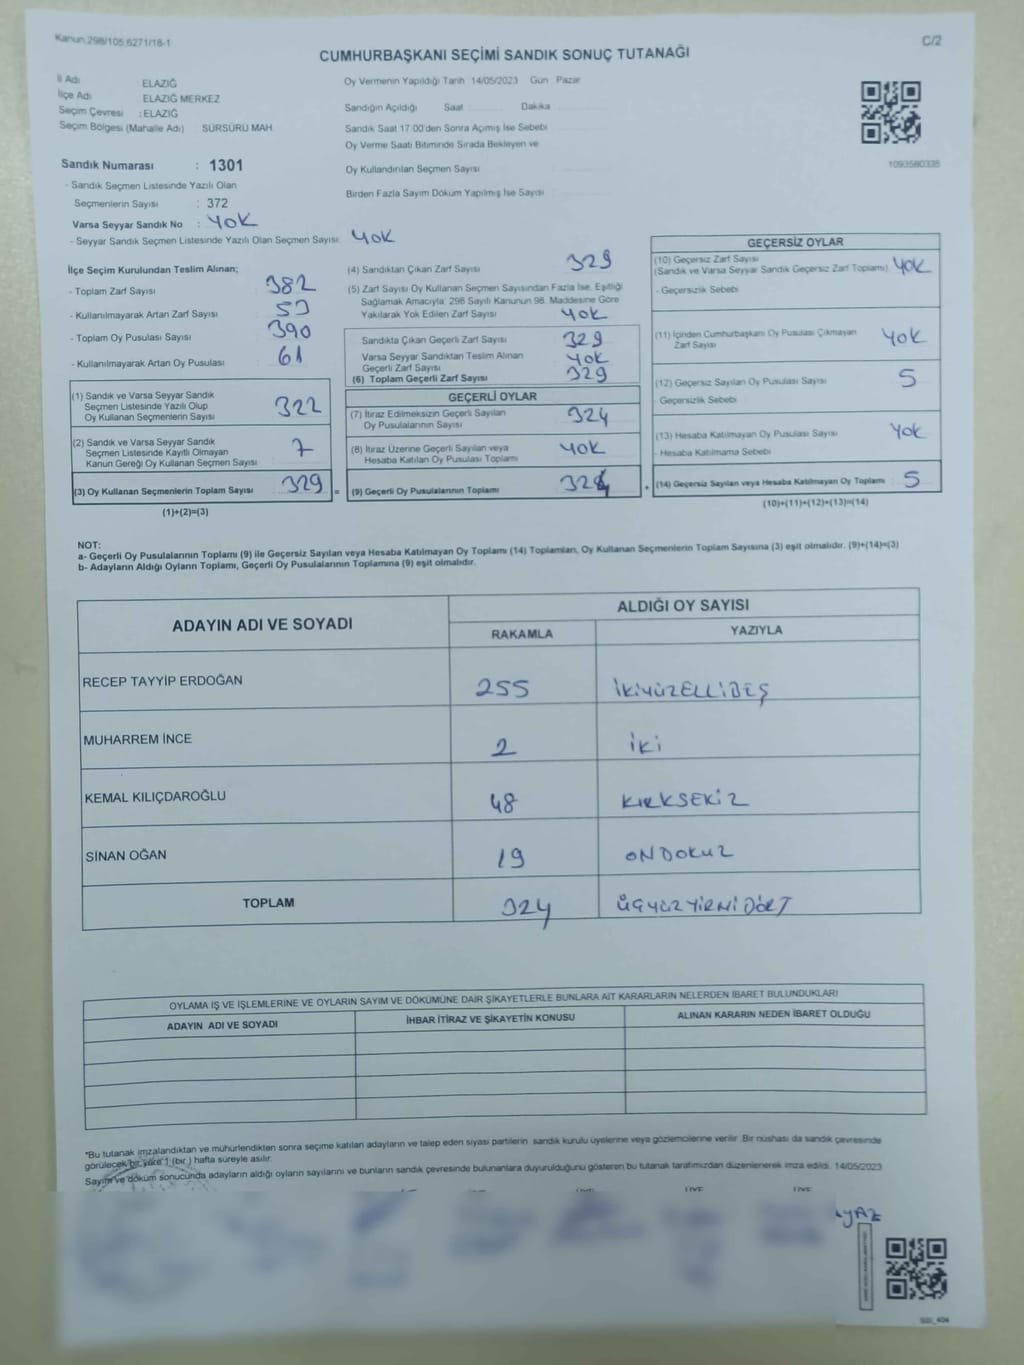 Kanun:298/105,6271/18-1
C/2
CUMHURBAŞKANI SEÇİMİ SANDIK SONUÇ TUTANAĞI
İl Adı ELAZIĞ
İlçe Adı ELAZIĞ MERKEZ
Seçim Çevresi : ELAZIĞ
Seçim Bölgesi (Mahalle Adı) SÜRSÜRÜ MAH.
Oy Vermenin Yapıldığı Tarih 14/05/2023 Gün Pazar
Sandığın Açıldığı Saat Dakika
Sandık Saat 17:00'den Sonra Açımış İse Sebebi
Oy Verme Saati Bitiminde Sırada Bekleyen ve
Oy Kullandırılan Seçmen Sayısı
Birden Fazla Sayım Döküm Yapılmış İse Sayısı
1093580335
Sandık Numarası : 1301
- Sandık Seçmen Listesinde Yazılı Olan
Seçmenlerin Sayısı : 372
Varsa Seyyar Sandık No : YOK
- Seyyar Sandık Seçmen Listesinde Yazılı Olan Seçmen Sayısı: YOK
İlçe Seçim Kurulundan Teslim Alınan;
- Toplam Zarf Sayısı 382
- Kullanılmayarak Artan Zarf Sayısı 53
- Toplam Oy Pusulası Sayısı 390
- Kullanılmayarak Artan Oy Pusulası 61
(1) Sandık ve Varsa Seyyar Sandık
Seçmen Listesinde Yazılı Olup
Oy Kullanan Seçmenlerin Sayısı 322
(2) Sandık ve Varsa Seyyar Sandık
Seçmen Listesinde Kayıtlı Olmayan
Kanun Gereği Oy Kullanan Seçmen Sayısı 7
(3) Oy Kullanan Seçmenlerin Toplam Sayısı 329 =
(1)+(2)=(3)
(4) Sandıktan Çıkan Zarf Sayısı 329
(5) Zarf Sayısı Oy Kullanan Seçmen Sayısından Fazla İse, Eşitliği
Sağlamak Amacıyla; 298 Sayılı Kanunun 98. Maddesine Göre
Yakılarak Yok Edilen Zarf Sayısı YOK
Sandıkta Çıkan Geçerli Zarf Sayısı 329
Varsa Seyyar Sandıktan Teslim Alınan
Geçerli Zarf Sayısı YOK
(6) Toplam Geçerli Zarf Sayısı 329
GEÇERLİ OYLAR
(7) İtiraz Edilmeksizin Geçerli Sayılan
Oy Pusulalarının Sayısı 324
(8) İtiraz Üzerine Geçerli Sayılan veya
Hesaba Katılan Oy Pusulası Toplamı YOK
(9) Geçerli Oy Pusulalarının Toplamı 324 +
GEÇERSİZ OYLAR
(10) Geçersiz Zarf Sayısı
(Sandık ve Varsa Seyyar Sandık Geçersiz Zarf Toplamı) YOK
- Geçersizlik Sebebi
(11) İçinden Cumhurbaşkanı Oy Pusulası Çıkmayan
Zarf Sayısı YOK
(12) Geçersiz Sayılan Oy Pusulası Sayısı 5
- Geçersizlik Sebebi
(13) Hesaba Katılmayan Oy Pusulası Sayısı YOK
- Hesaba Katılmama Sebebi
(14) Geçersiz Sayılan veya Hesaba Katılmayan Oy Toplamı 5
(10)+(11)+(12)+(13)=(14)
NOT:
a- Geçerli Oy Pusulalarının Toplamı (9) ile Geçersiz Sayılan veya Hesaba Katılmayan Oy Toplamı (14) Toplamları, Oy Kullanan Seçmenlerin Toplam Sayısına (3) eşit olmalıdır. (9)+(14)=(3)
b- Adayların Aldığı Oyların Toplamı, Geçerli Oy Pusulalarının Toplamına (9) eşit olmalıdır.
ADAYIN ADI VE SOYADI ALDIĞI OY SAYISI
RAKAMLA YAZIYLA
RECEP TAYYİP ERDOĞAN 255 İKİYÜZELLİBEŞ
MUHARREM İNCE 2 İKİ
KEMAL KILIÇDAROĞLU 48 KIRKSEKİZ
SİNAN OĞAN 19 ONDOKUZ
TOPLAM 324 ÜÇYÜZYİRMİDÖRT
OYLAMA İŞ VE İŞLEMLERİNE VE OYLARIN SAYIM VE DÖKÜMÜNE DAİR ŞİKAYETLERLE BUNLARA AİT KARARLARIN NELERDEN İBARET BULUNDUKLARI
ADAYIN ADI VE SOYADI İHBAR İTİRAZ VE ŞİKAYETİN KONUSU ALINAN KARARIN NEDEN İBARET OLDUĞU
*Bu tutanak imzalandıktan ve mühürlendikten sonra seçime katılan adayların ve talep eden siyasi partilerin sandık kurulu üyelerine veya gözlemcilerine verilir. Bir nüshası da sandık çevresinde
görülecek bir yere 1 (bir ) hafta süreyle asılır.
Sayım ve döküm sonucunda adayların aldığı oyların sayılarını ve bunların sandık çevresinde bulunanlara duyurulduğunu gösteren bu tutanak tarafımızdan düzenlenerek imza edildi. 14/05/2023